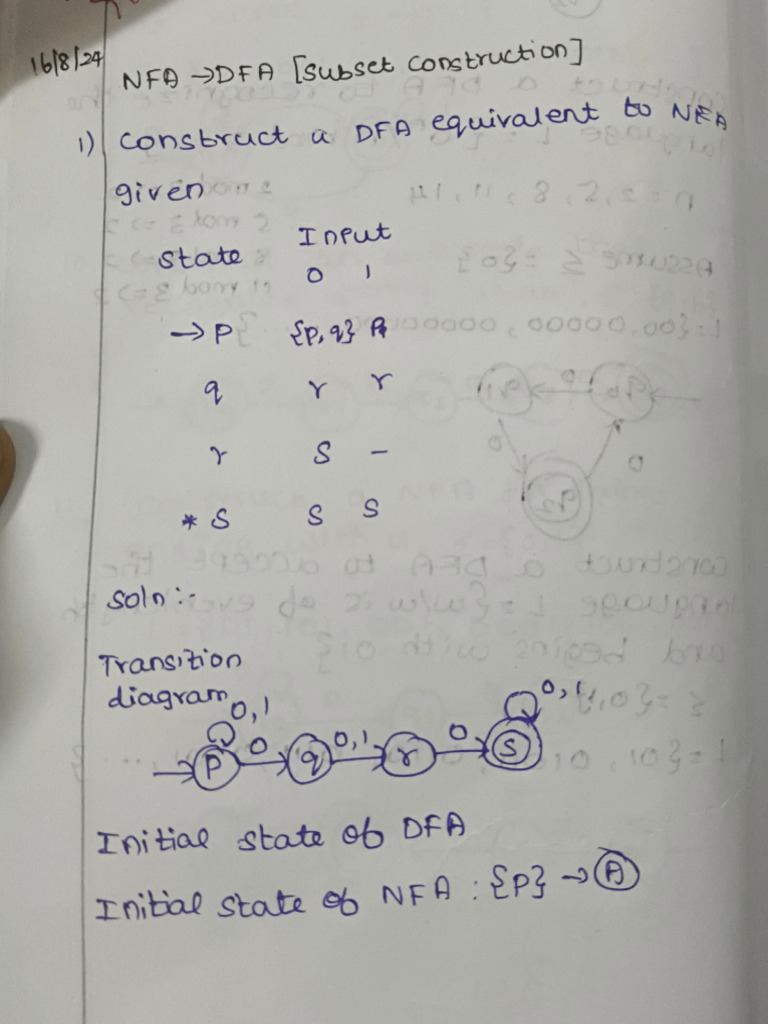 16/8/24
NFA →DFA [subset construction]
1) construct a DFA equivalent to NFA
given
State Input
0 1
→P {P,q} P
q r r
r S -
* S S S
soln :-
Transition
diagram
0,1 0 0,1 0 0,1
P q r S
Initial state of DFA
Initial state of NFA : {P} → A